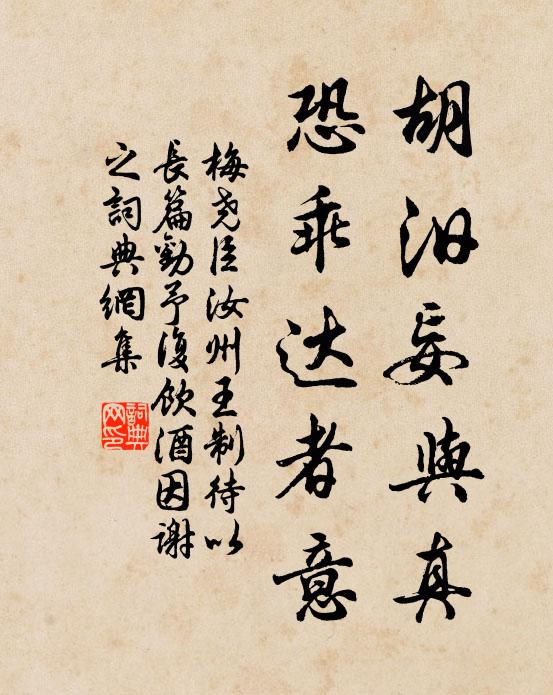 胡汩妄與真
恐乖达者意
梅尧臣汝州王制待以
長篇勸予復飲酒因谢
之詞典網集
詞典
网印